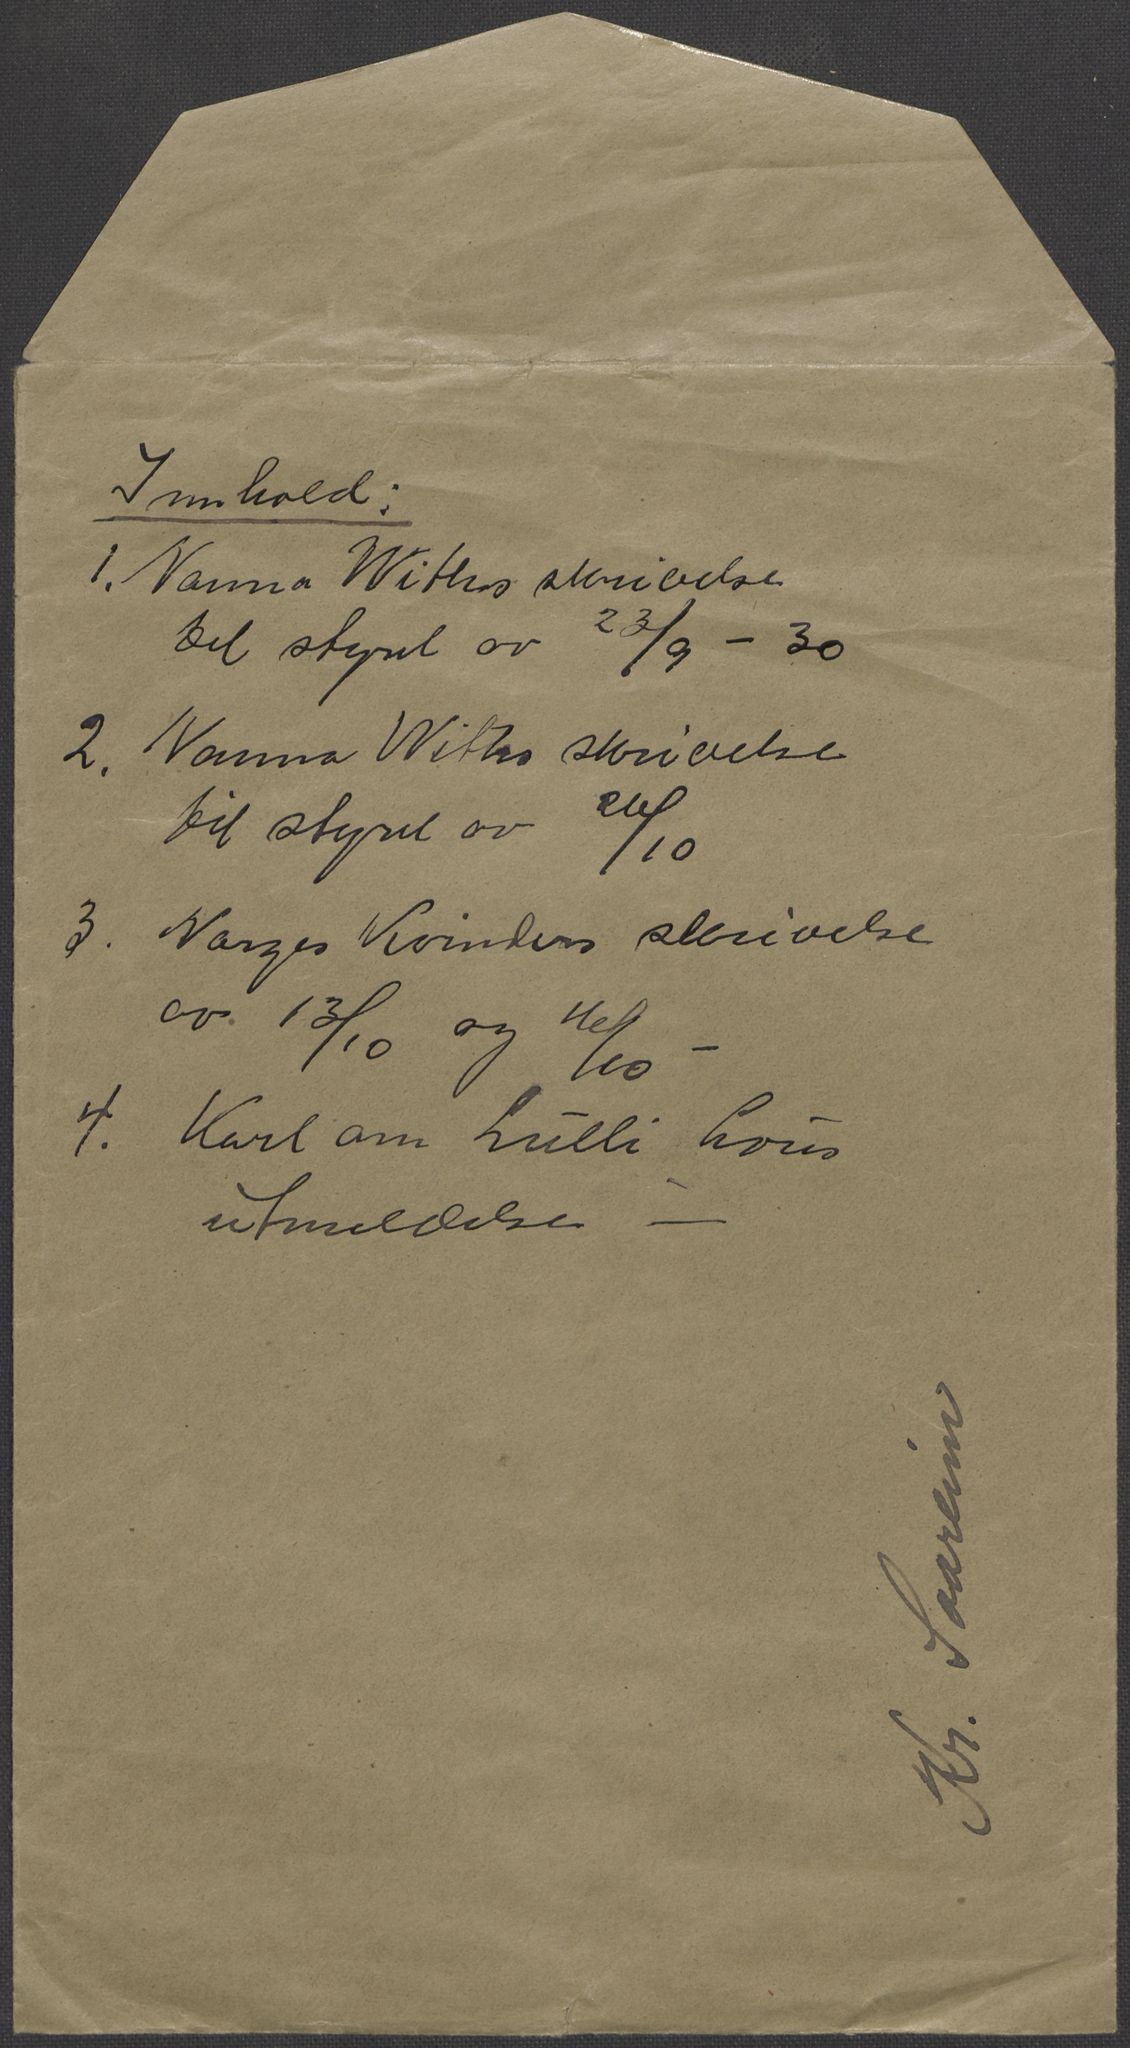 Innhold:
1. Nanna Withs skrivelse
til styret av 23/9 - 30
2. Nanna Withs skrivelse
til styret av /10
3. Norges Kvinders skrivelse
av 13/10 og /10 -
4. Kort om Lulli Lous
utmeldelse -
Kr. Saarheim